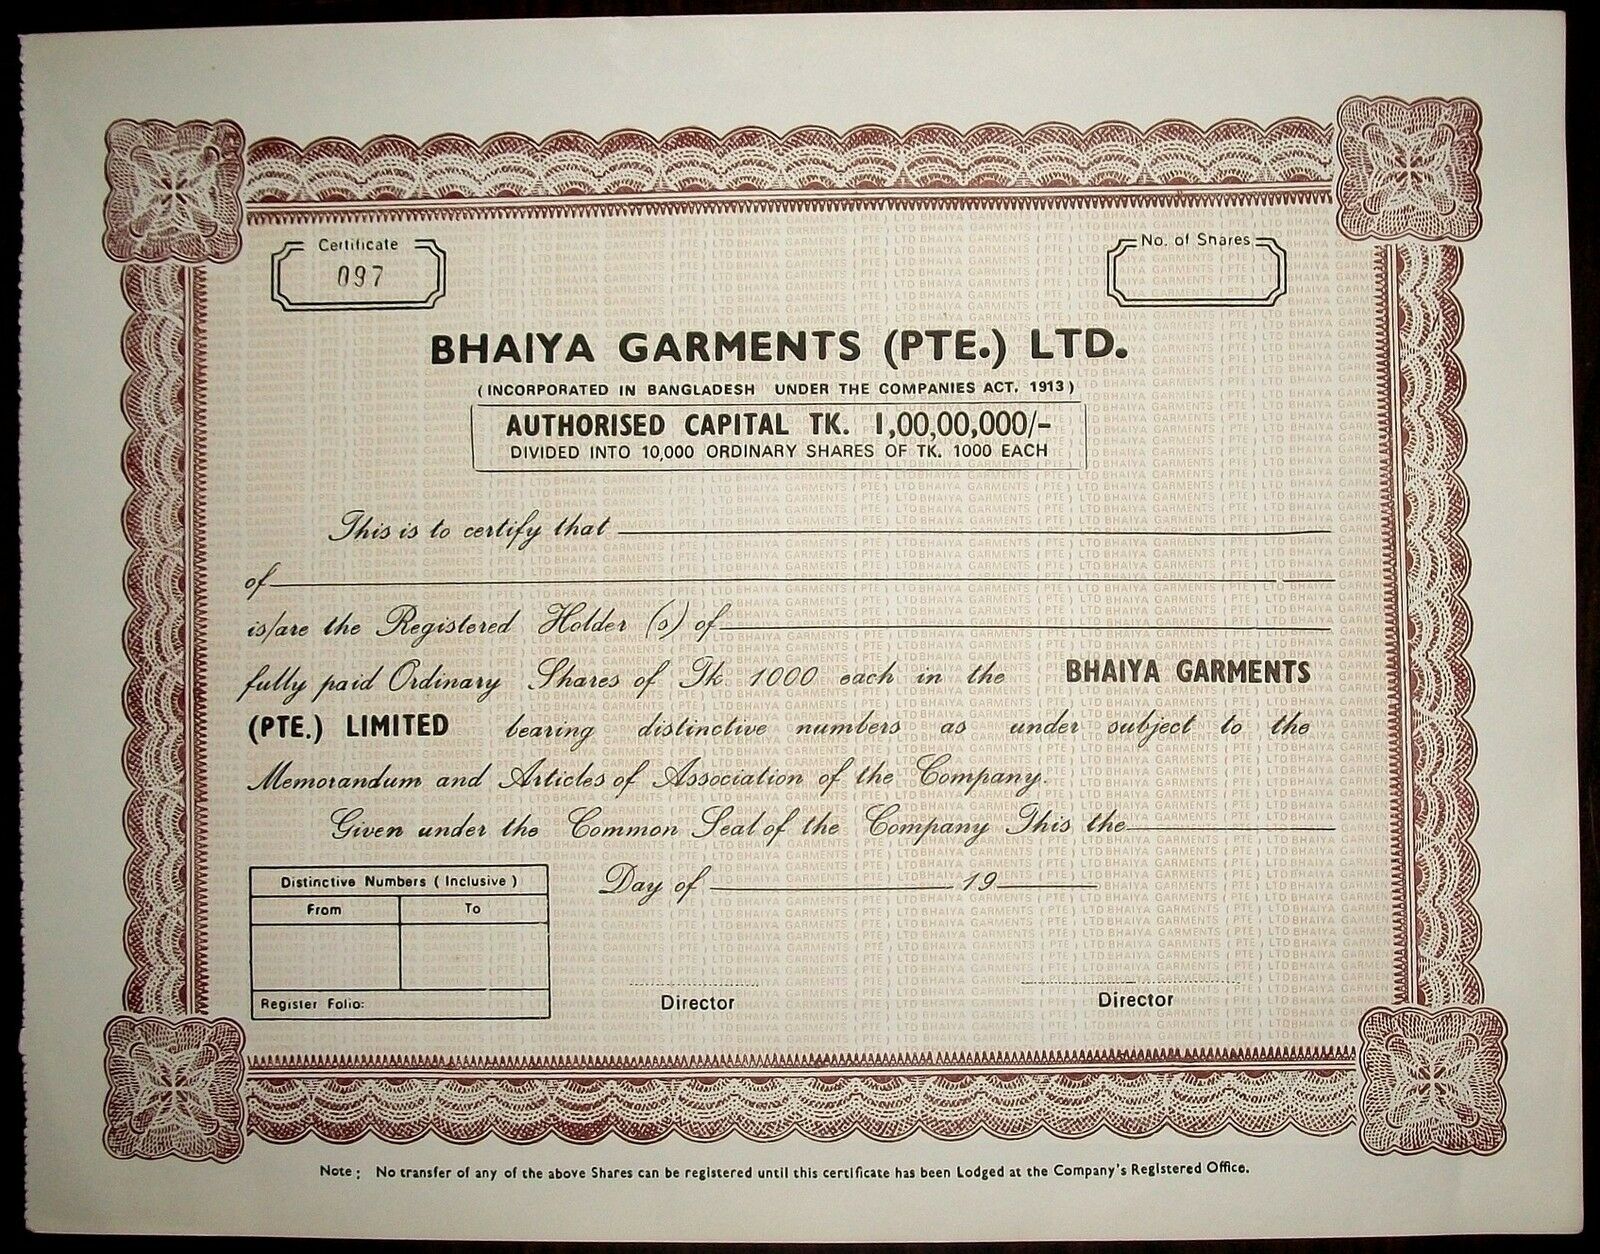 Certificate
No. of Shares
097
BHAIYA GARMENTS (PTE.) LTD.
(INCORPORATED IN BANGLADESH UNDER THE COMPANIES ACT. 1913)
AUTHORISED CAPITAL TK. 1,00,00,000/-
DIVIDED INTO 10,000 ORDINARY SHARES OF TK. 1000 EACH
This is to certify that
of
is/are the Registered Holder (s) of
fully paid Ordinary Shares of Tk 1000 each in the BHAIYA GARMENTS
(PTE.) LIMITED bearing distinctive numbers as under subject to the
Memorandum and Articles of Association of the Company.
Given under the Common Seal of the Company This the
Day of 19
Distinctive Numbers ( Inclusive )
From To
Register Folio:
Director
Director
Note : No transfer of any of the above Shares can be registered until this certificate has been Lodged at the Company's Registered Office.